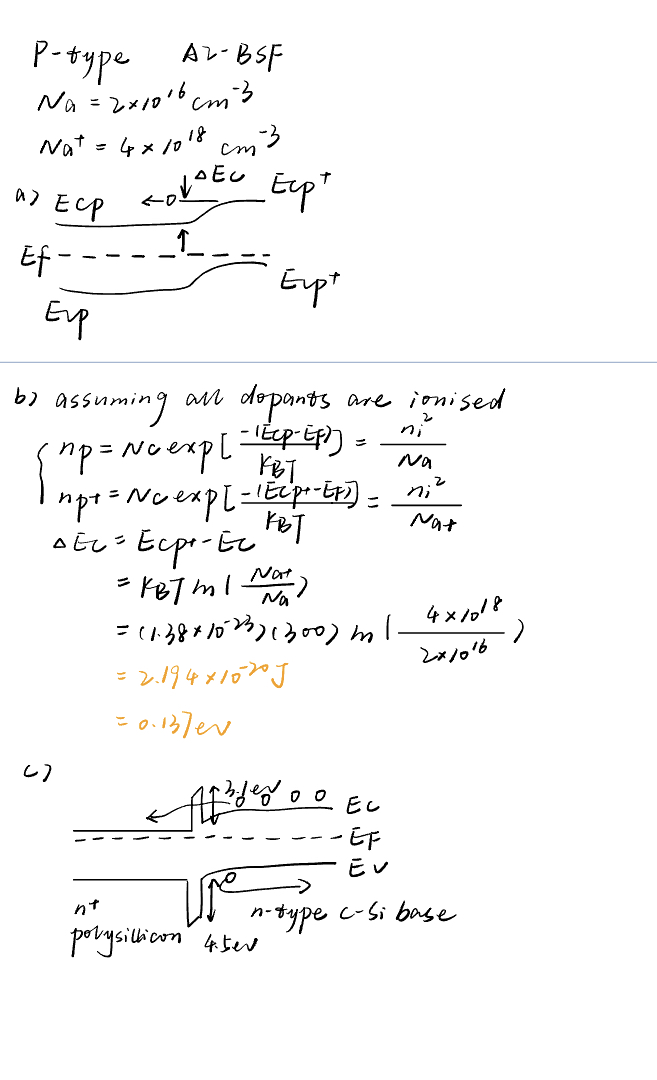 P-type Al-BSF
Na = 2×10^16 cm^-3
Na+ = 4×10^18 cm^-3
a) Ecp ←o ΔEc Ecp+
Ef
Evp Evp+
b) assuming all dopants are ionised
np = Nc exp[-(Ecp-Ef)/KBT] = ni^2/Na
np+ = Nc exp[-(Ecp+-Ef)/KBT] = ni^2/Na+
ΔEc = Ecp+-Ec
= KBT ln(Na+/Na)
= (1.38×10^-23)(300) ln(4×10^18/2×10^16)
= 2.194×10^-20 J
= 0.137eV
c)
3.1eV o o o Ec
EF
Ev
n+ polysillicon 4.5eV n-type c-Si base